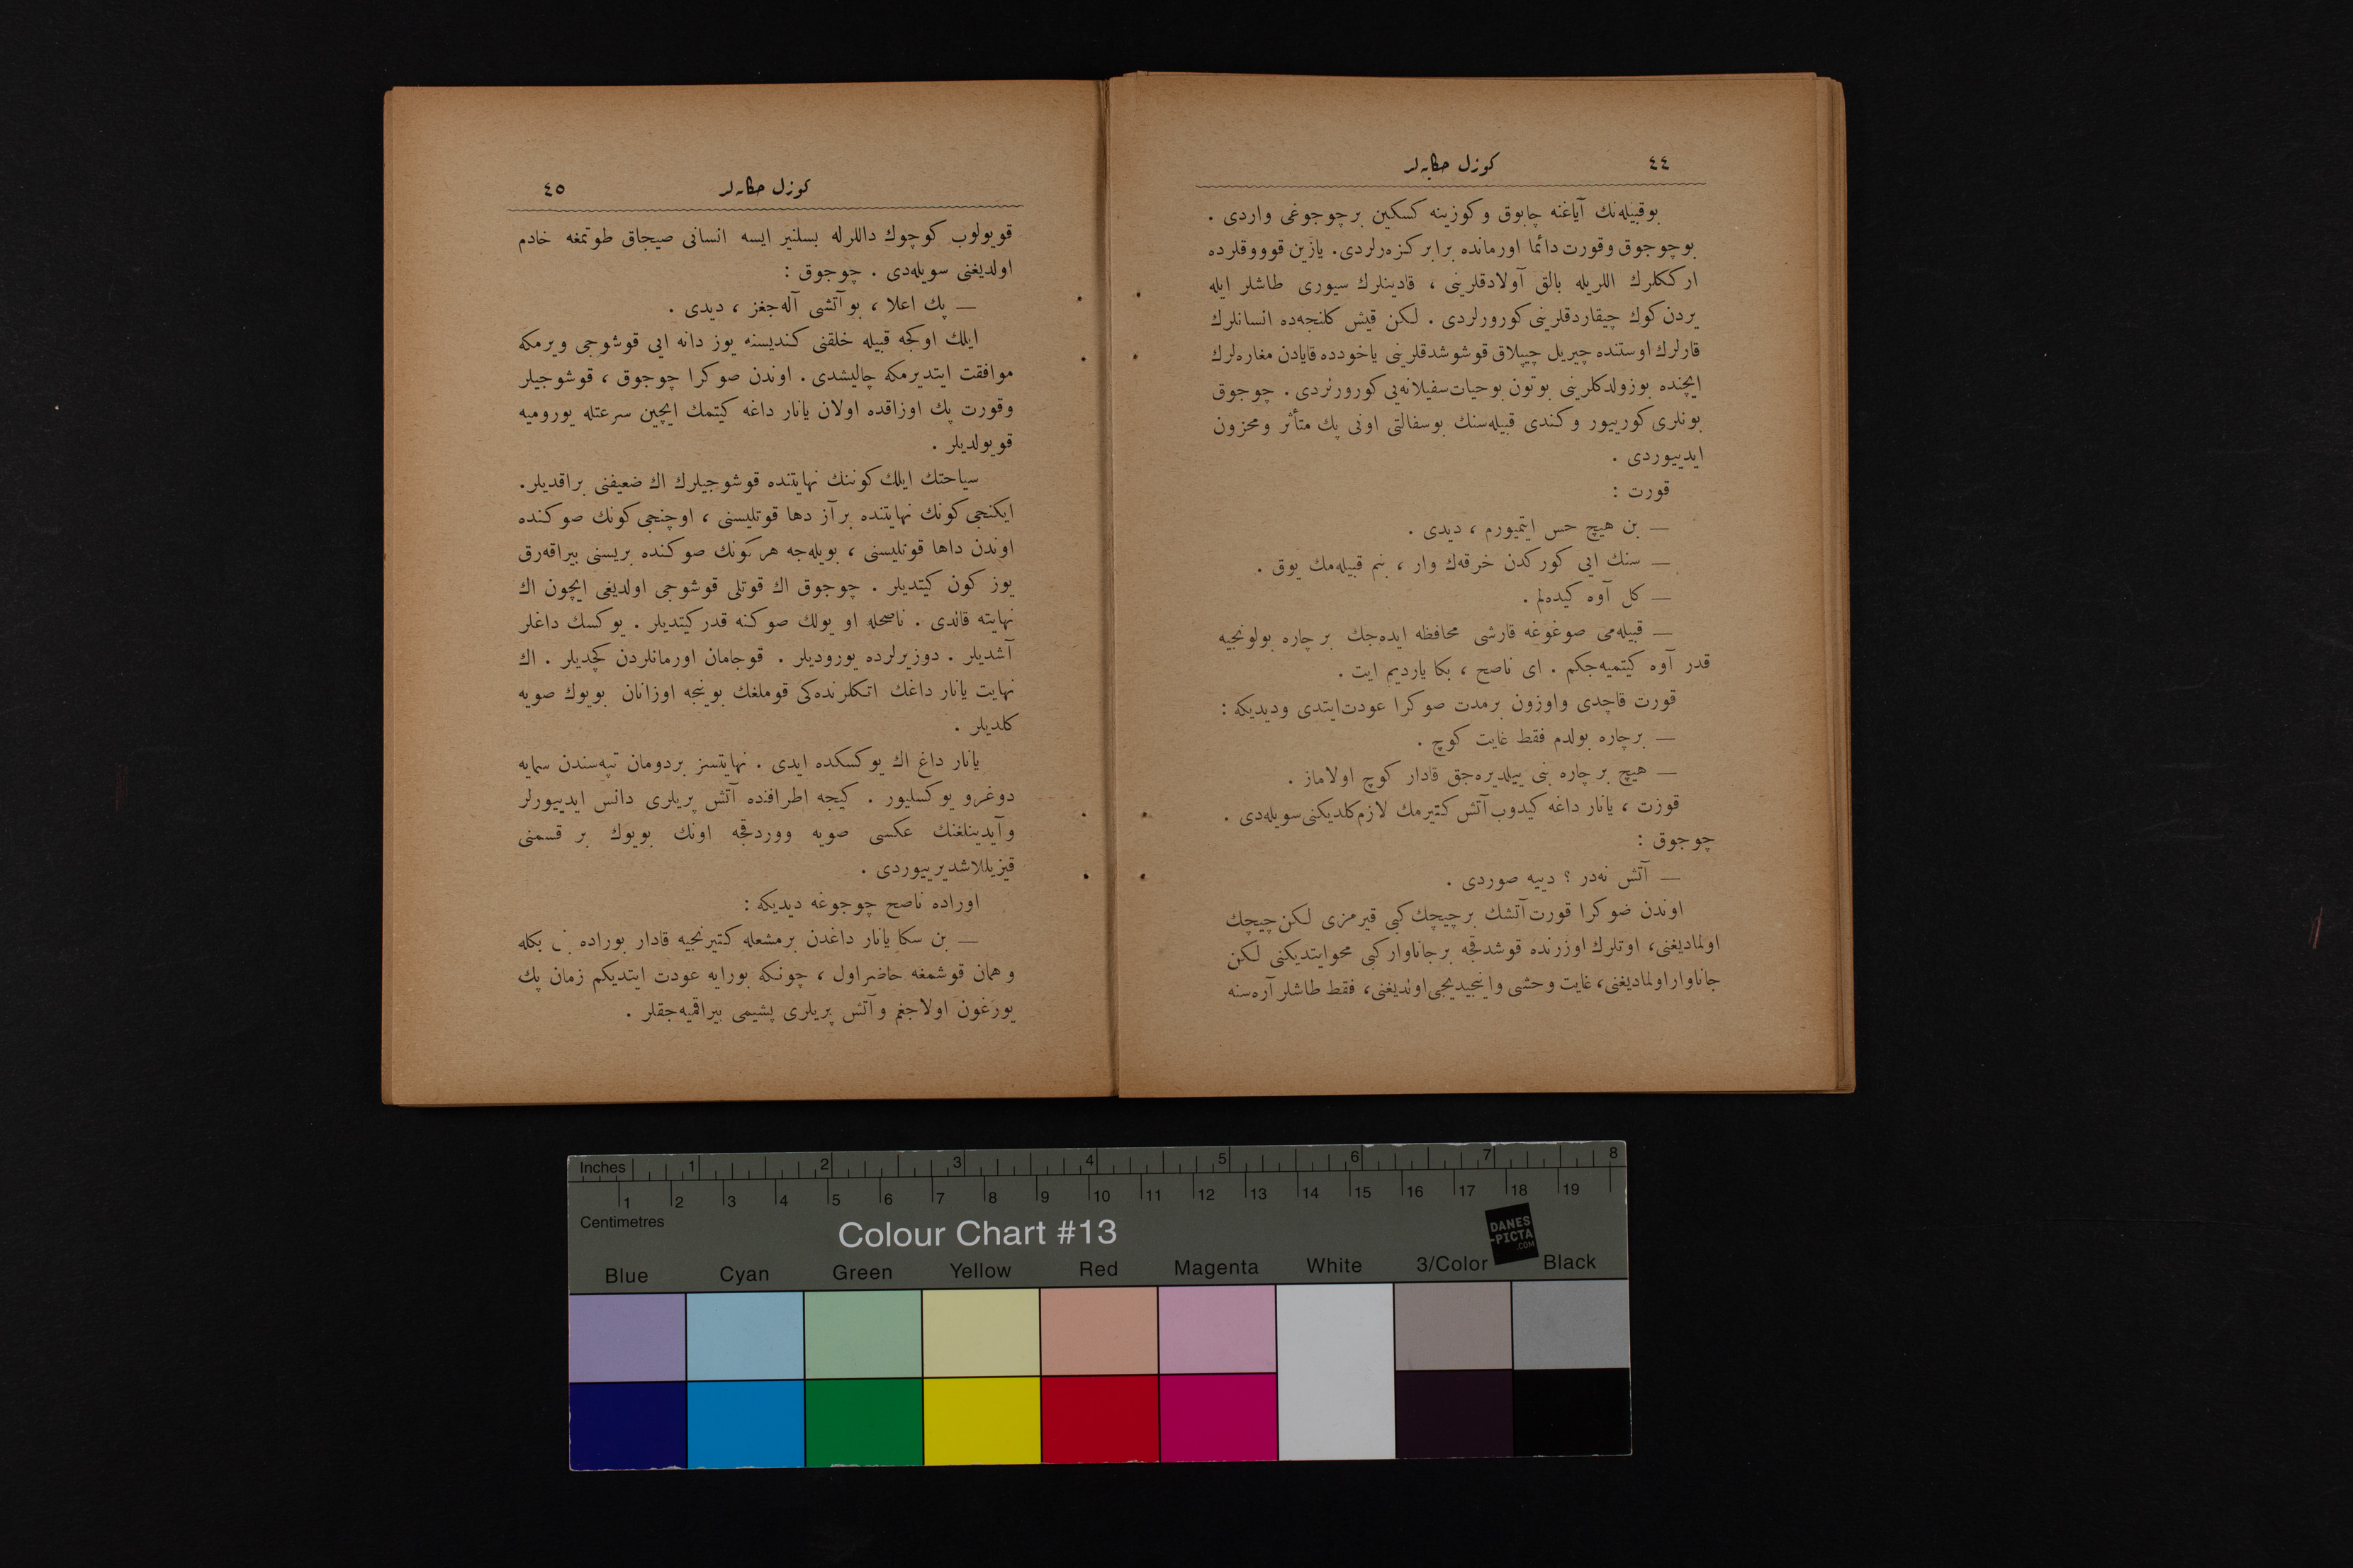 ٤٤
كوزل حكايه‌لر
بوقبيله‌نك آياغنه چابوق وكوزينه كسكين برچوجوغى واردى .
بوچوجوق وقورت دائما اورمانده برابر كزه‌رلردى. يازين قوووقلرده
ارككلرك اللريله بالق آولادقلرينى ، قادينلرك سيورى طاشلر ايله
يردن كوك چيقاردقلرينى كورورلردى . لكن قيش كلنجه‌ده انسانلرك
قارلرك اوستنده چيريل چيپلاق قوشوشدقلرينى ياخودده قايادن مغاره‌لرك
ايچنده بوزولدكلرينى بوتون بوحيات سفيلانه‌يى كورورلردى . چوجوق
بونلرى كورييور وكندى قبيله‌سنك بوسفالتى اونى پك متأثر ومحزون
ايدييوردى .
قورت :
— بن هيچ حس ايتميورم ، ديدى .
— سنك ايى كوركدن خرقه‌ك وار ، بنم قبيله‌مك يوق .
— كل آوه كيده‌لم .
— قبيله‌مى صوغوغه قارشى محافظه ايده‌جك بر چاره بولونجيه
قدر آوه كيتميه‌جكم . اى ناصح ، بكا يارديم ايت .
قورت قاچدى واوزون برمدت صوكرا عودت‌ايتدى وديديكه :
— برچاره بولدم فقط غايت كوچ .
— هيچ بر چاره بنى ييلديره‌جق قادار كوچ اولاماز .
قورت ، يانار داغه كيدوب آتش كتيرمك لازم‌كلديكنى سويله‌دى .
چوجوق :
— آتش نه‌در ؟ دييه صوردى .
اوندن صوكرا قورت آتشك برچيچك كبى قيرمزى لكن چيچك
اولماديغنى، اوتلرك اوزرنده قوشدقجه برجاناوار كبى محوايتديكنى لكن
جاناوار اولماديغنى، غايت وحشى واينجيديجى اولديغنى، فقط طاشلر آره‌سنه
كوزل حكايه‌لر
٤٥
قويولوب كوچوك داللرله بسلنير ايسه انسانى صيجاق طوتمغه خادم
اولديغنى سويله‌دى . چوجوق :
— پك اعلا ، بوآتشى آله‌جغز ، ديدى .
ايلك اوكجه قبيله خلقنى كنديسنه يوز دانه ايى قوشوجى ويرمكه
موافقت ايتديرمكه چاليشدى . اوندن صوكرا چوجوق ، قوشوجيلر
وقورت پك اوزاقده اولان يانار داغه كيتمك ايچين سرعتله يوروميه
قويولديلر .
سياحتك ايلك كوننك نهايتنده قوشوجيلرك اك ضعيفنى براقديلر.
ايكنجى كونك نهايتنده برآز دها قوتليسنى ، اوچنجى كونك صوكنده
اوندن داها قوتليسنى ، بويله‌جه هر كونك صوكنده بريسنى بيراقه‌رق
يوز كون كيتديلر . چوجوق اك قوتلى قوشوجى اولديغى ايچون اك
نهايته قالدى . ناصحله او يولك صوكنه قدر كيتديلر . يوكسك داغلر
آشديلر . دوزيرلرده يوروديلر . قوجامان اورمانلردن كچديلر . اك
نهايت يانار داغك اتكلرنده‌كى قوملغك بوينجه اوزانان بويوك صويه
كلديلر .
يانار داغ اك يوكسكده ايدى . نهايتسز بردومان تپه‌سندن سمايه
دوغرو يوكسليور . كيجه اطرافنده آتش پريلرى دانس ايدييورلر
وآيدينلغنك عكسى صويه ووردقجه اونك بويوك بر قسمنى
قيزيللاشديرييوردى .
اوراده ناصح چوجوغه ديديكه :
— بن سكا يانار داغدن برمشعله كتيرنجيه قادار بوراده بكله
وهمان قوشمغه حاضر اول ، چونكه بورايه عودت ايتديكم زمان پك
يورغون اولاجغم وآتش پريلرى پشيمى بيراقميه‌جقلر .
Inches 1 2 3 4 5 6 7 8
1 2 3 4 5 6 7 8 9 10 11 12 13 14 15 16 17 18 19
Centimetres
Colour Chart #13
DANES
-PICTA
.COM
Blue Cyan Green Yellow Red Magenta White 3/Color Black